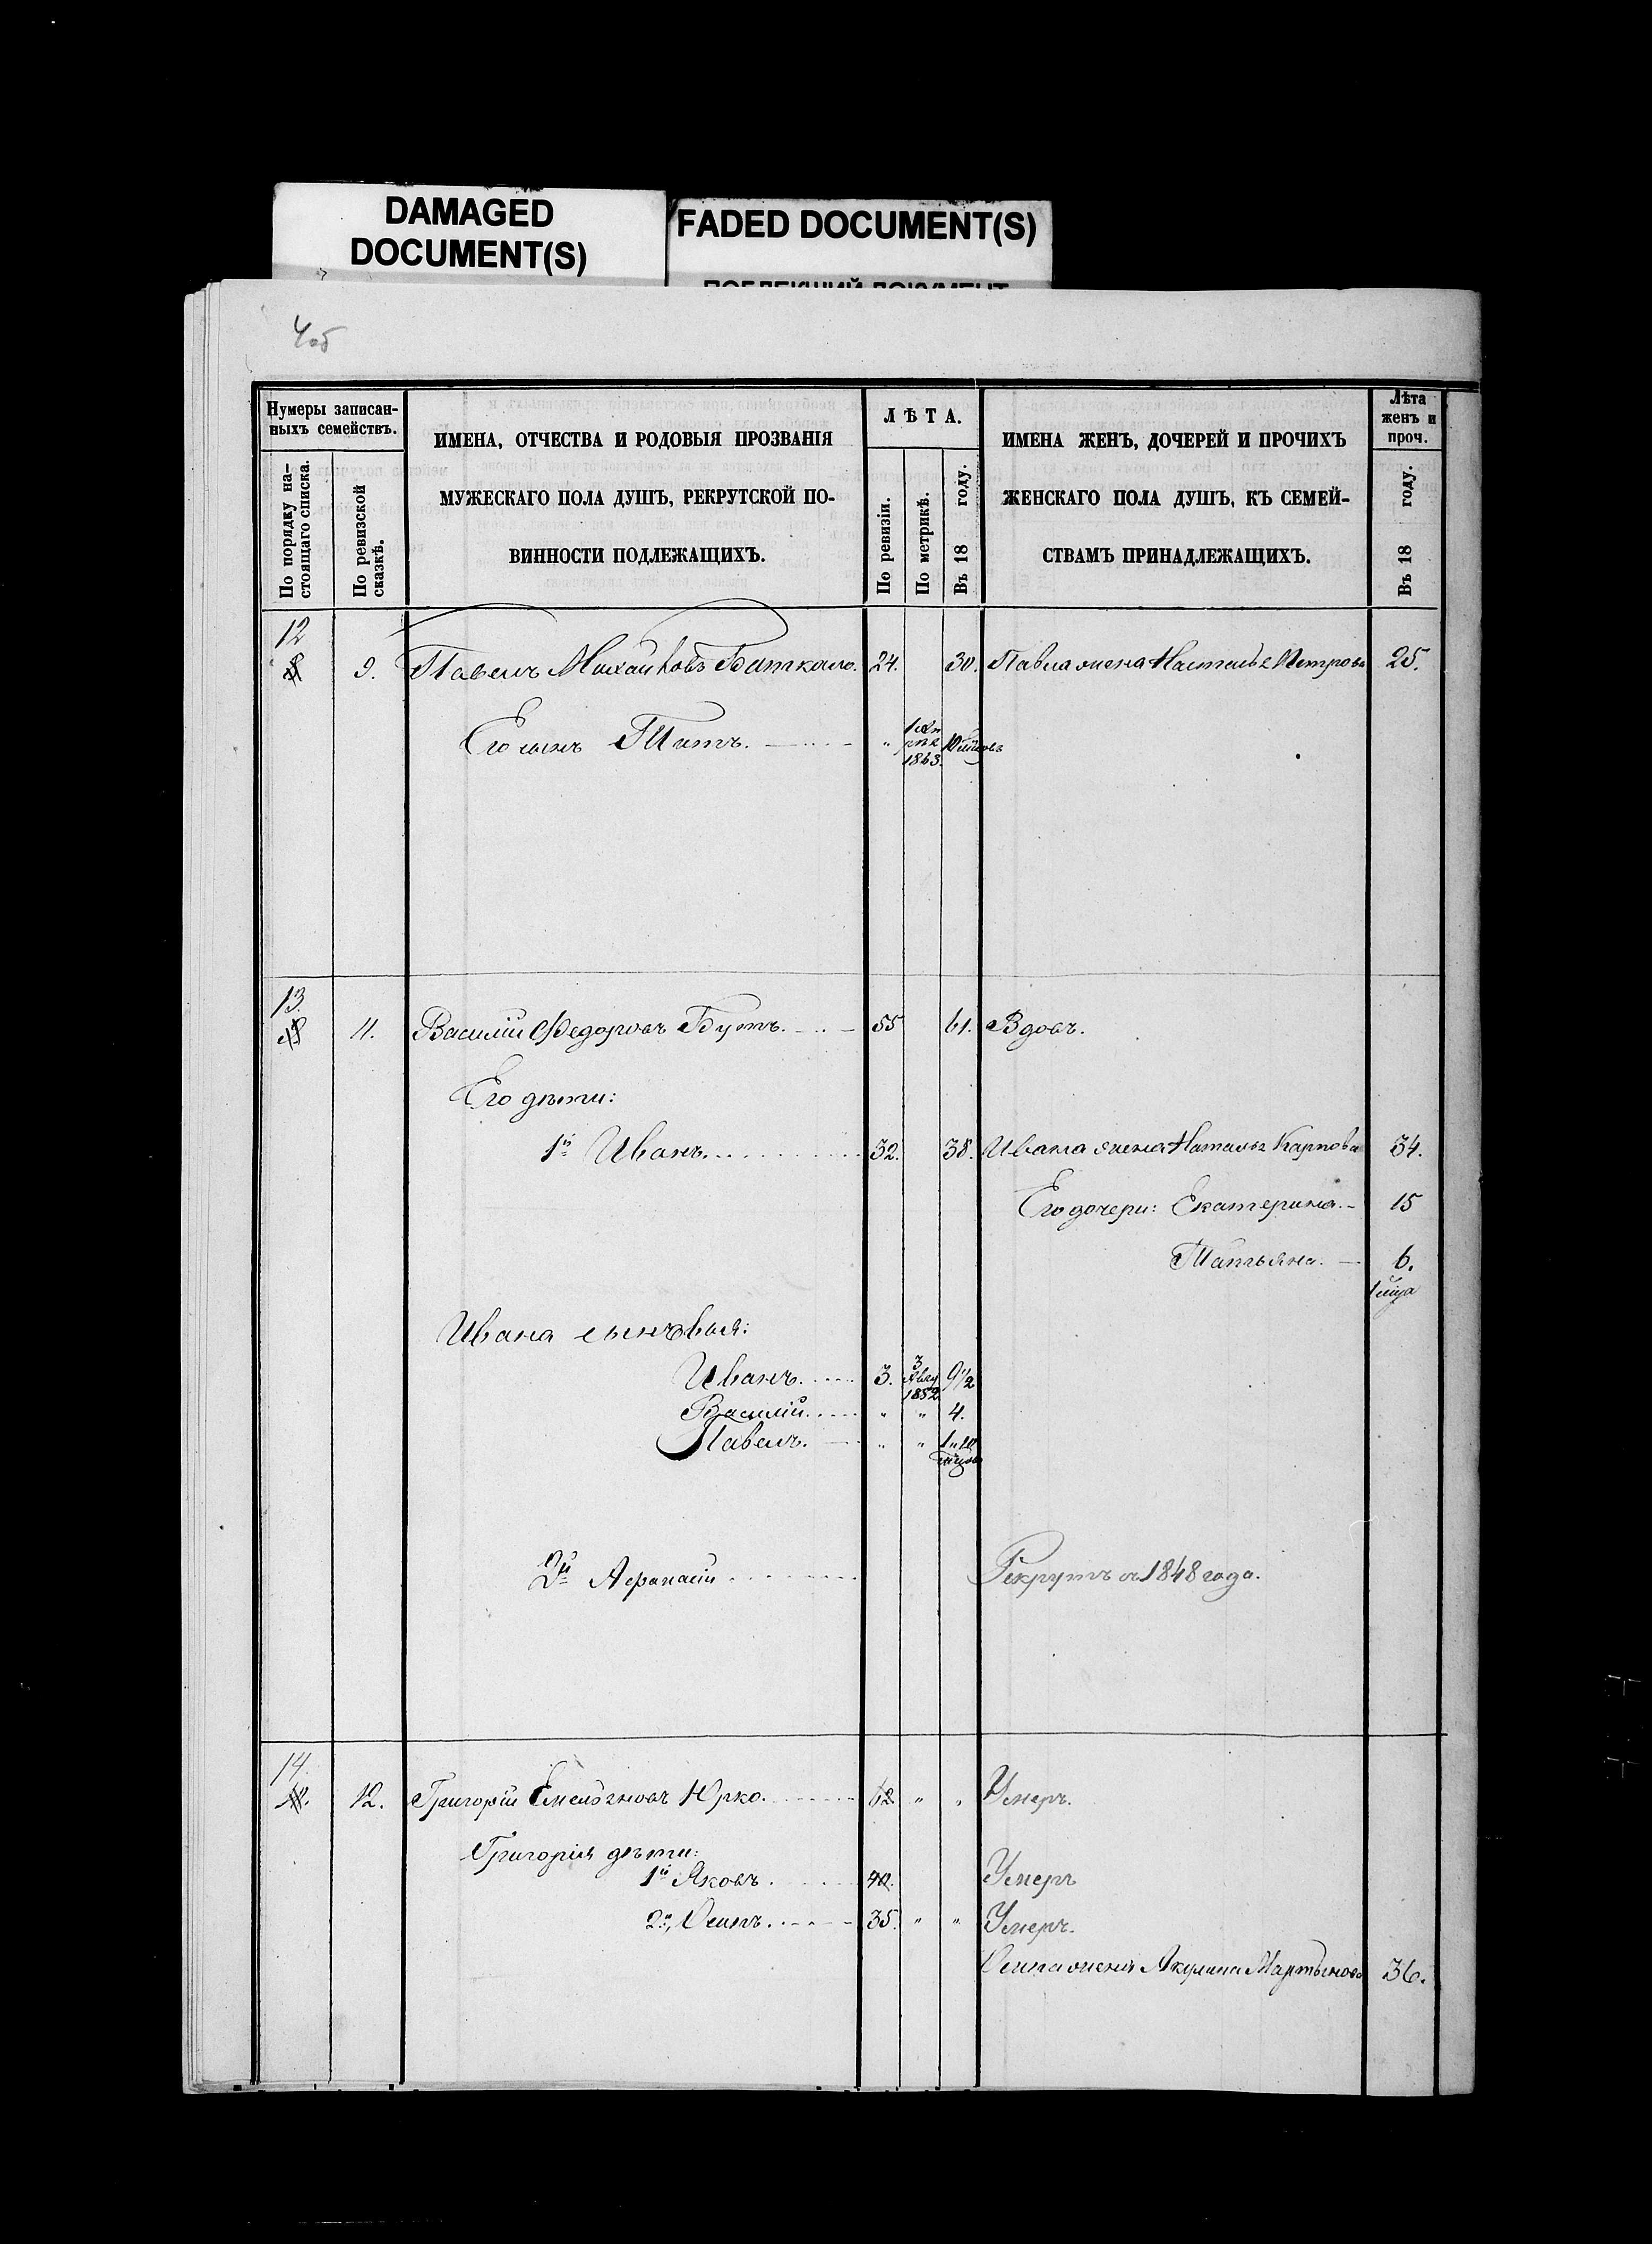 DAMAGED
DOCUMENT(S)
FADED DOCUMENT(S)
4 об
Нумеры записан-
ныхъ семействъ.
По порядку на-
стоящаго списка.
По ревизской
сказкѣ.
ИМЕНА, ОТЧЕСТВА И РОДОВЫЯ ПРОЗВАНІЯ
МУЖЕСКАГО ПОЛА ДУШЪ, РЕКРУТСКОЙ ПО-
ВИННОСТИ ПОДЛЕЖАЩИХЪ.
ЛѢТА.
По ревизіи.
По метрикѣ.
Въ 18 году.
ИМЕНА ЖЕНЪ, ДОЧЕРЕЙ И ПРОЧИХЪ
ЖЕНСКАГО ПОЛА ДУШЪ, КЪ СЕМЕЙ-
СТВАМЪ ПРИНАДЛЕЖАЩИХЪ.
Лѣта
женъ и
проч.
Въ 18 году.
12
9. Павелъ 24. 30. Павла жена Наталья Петрова 25.
Его сынъ Титъ. " 1863.
13.
11. Василій Федоровъ Бутъ. 55 61. Вдовъ.
Его дѣти:
1й Иванъ. 32. 38. Ивана жена Наталья Карпова 34.
Его дочери: Екатерина. 15
Татьяна. 6.
Ивана сыновья:
Иванъ. 3. 3 1852 9 1/2
Василій. " " 4.
Павелъ. " "
2й Афанасій Рекрутъ съ 1848 года.
14.
12. Григорій Юрко. 62 " " Умеръ.
Григорія дѣти:
1й Яковъ. 40. Умеръ
2й, Осипъ. 35. " " Умеръ.
Осипа жена Акулина Мартынова 36.